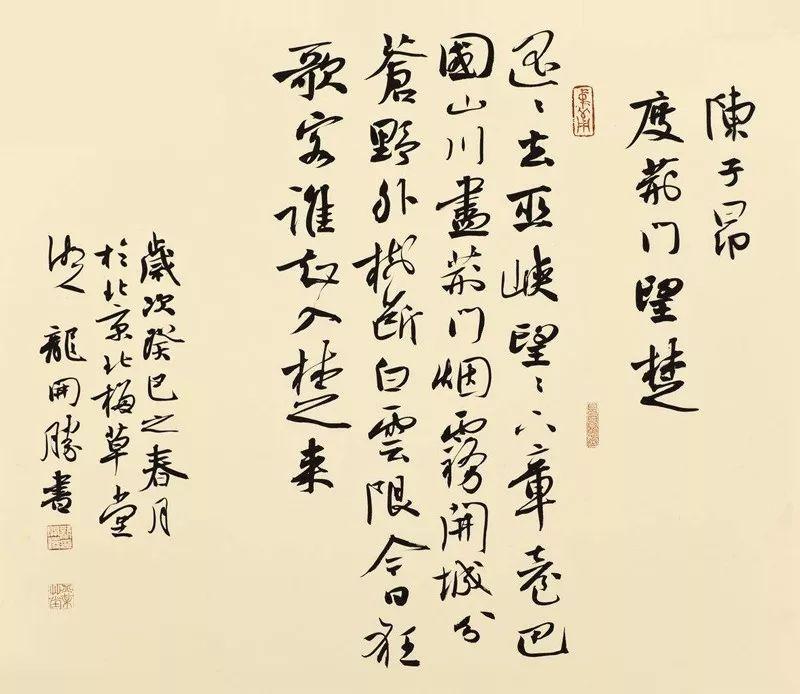 陳子昂
度荊門望楚
遥〻去巫峽望〻下章臺巴
國山川盡荊門烟霧開城分
蒼野外樹斷白雲隈今日狂
歌客誰知入楚来
歲次癸巳之春月
於北京北梅草堂
龍開勝書